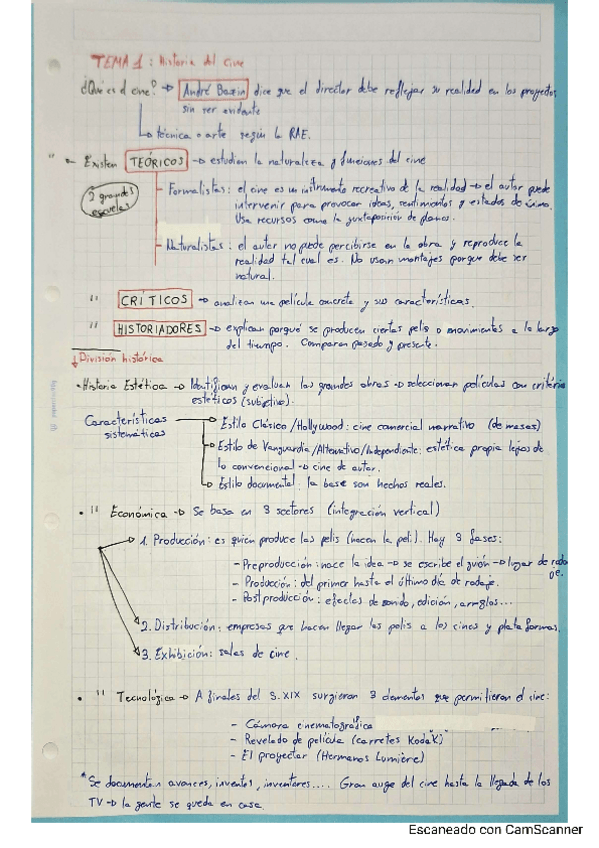 TEMA 1: Historia del cine
¿Qué es el cine? → André Bazin dice que el director debe reflejar su realidad en los proyectos,
sin ser evidente
↳ técnica o arte según la RAE.
" Existen TEÓRICOS → estudian la naturaleza y funciones del cine
2 grandes
escuelas
- Formalistas: el cine es un instrumento recreativo de la realidad → el autor puede
intervenir para provocar ideas, sentimientos y estados de ánimo.
Usa recursos como la yuxtaposición de planos.
- Naturalistas: el autor no puede percibirse en la obra y reproduce la
realidad tal cual es. No usan montajes porque debe ser
natural.
" CRÍTICOS → analizan una película concreta y sus características.
" HISTORIADORES → explican porqué se producen ciertas pelis o movimientos a lo largo
del tiempo. Comparan pasado y presente.
↓ División histórica
• Historia Estética → Identifican y evaluan las grandes obras → seleccionan películas con criterios
estéticos (subjetivo).
Características
sistemáticas
→ Estilo Clásico / Hollywood: cine comercial narrativo (de masas)
→ Estilo de Vanguardia / Alternativo / Independiente: estética propia lejos de
lo convencional → cine de autor.
→ Estilo documental: la base son hechos reales.
• " Económica → Se basa en 3 sectores (integración vertical)
1. Producción: es quien produce las pelis (hacen la peli). Hay 3 fases:
- Preproducción: nace la idea → se escribe el guión → lugar de roda
je.
- Producción: del primer hasta el último día de rodaje.
- Postproducción: efectos de sonido, edición, arreglos...
2. Distribución: empresas que hacen llegar las pelis a los cines y plataformas.
3. Exhibición: salas de cine.
• " Tecnológica → A finales del S. XIX surgieron 3 elementos que permitieron el cine:
- Cámara cinematográfica
- Revelado de película (carretes Kodak)
- El proyectar (Hermanos Lumière)
* Se documentan avances, inventos, inventores.... Gran auge del cine hasta la llegada de los
TV → la gente se queda en casa.
Escaneado con CamScanner